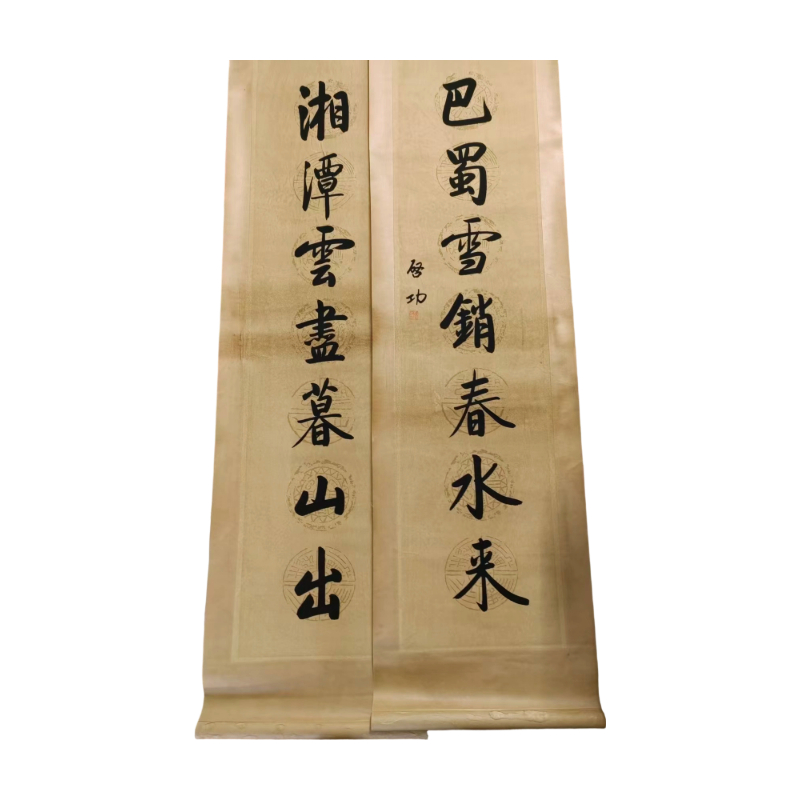 巴蜀雪銷春水来
啓功
湘潭雲盡暮山出